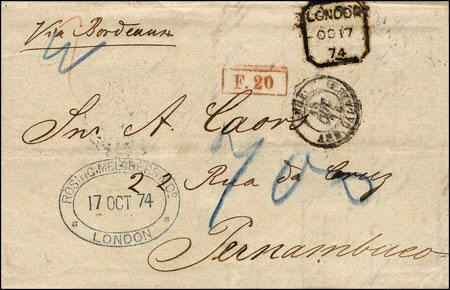 Via Bordeaux
LONDON
OC 17
74
F. 20
Snr A. Caors
22 Rua da Cruz
Pernambuco
ROSING, MELCHERS & Co.
17 OCT 74
LONDON
700